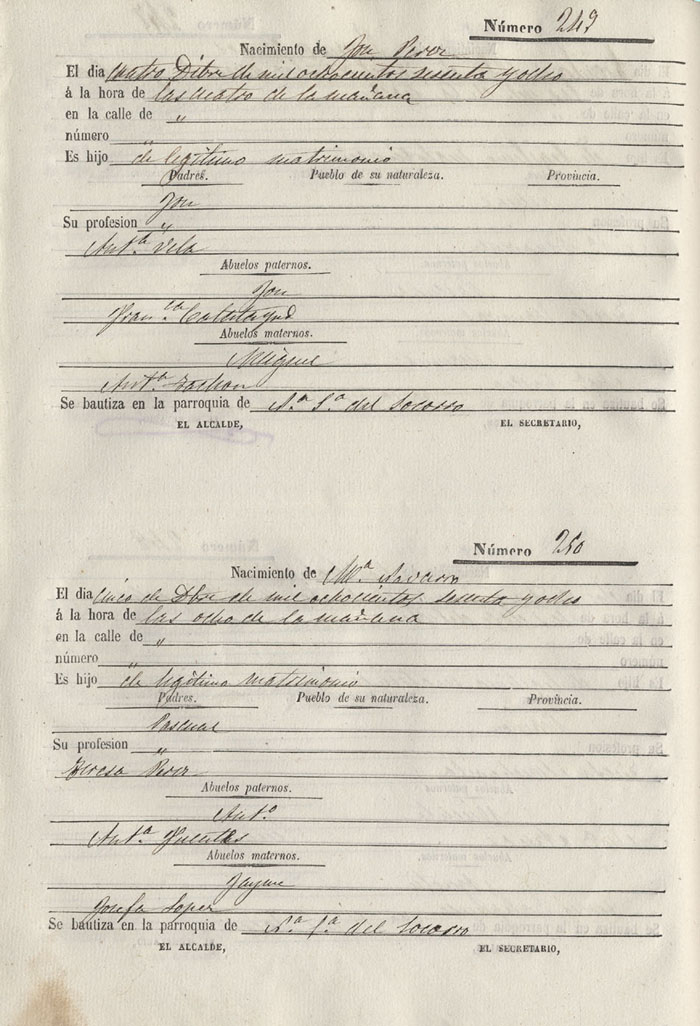 Número 249
Nacimiento de Jose Perez
El dia cuatro Dbre de mil ochocientos sesenta y ocho
á la hora de las cuatro de la mañana
en la calle de "
número "
Es hijo de legitimo matrimonio
Padres. Pueblo de su naturaleza. Provincia.
Jose
Su profesion "
Ant.ª Vela
Abuelos paternos.
Jose
Fran.ca Calatayud
Abuelos maternos.
Miguel
Ant.ª
Se bautiza en la parroquia de N.ª S.ª del Socorro
EL ALCALDE, EL SECRETARIO,
Número 250
Nacimiento de M.ª Navarro
El dia cinco de Dbre de mil ochocientos sesenta y ocho
á la hora de las ocho de la mañana
en la calle de "
número "
Es hijo de legitimo matrimonio
Padres. Pueblo de su naturaleza. Provincia.
Pascual
Su profesion "
Teresa Perez
Abuelos paternos.
Ant.º
Ant.ª Fuentes
Abuelos maternos.
Jayme
Josefa Lopez
Se bautiza en la parroquia de N.ª S.ª del Socorro
EL ALCALDE, EL SECRETARIO,